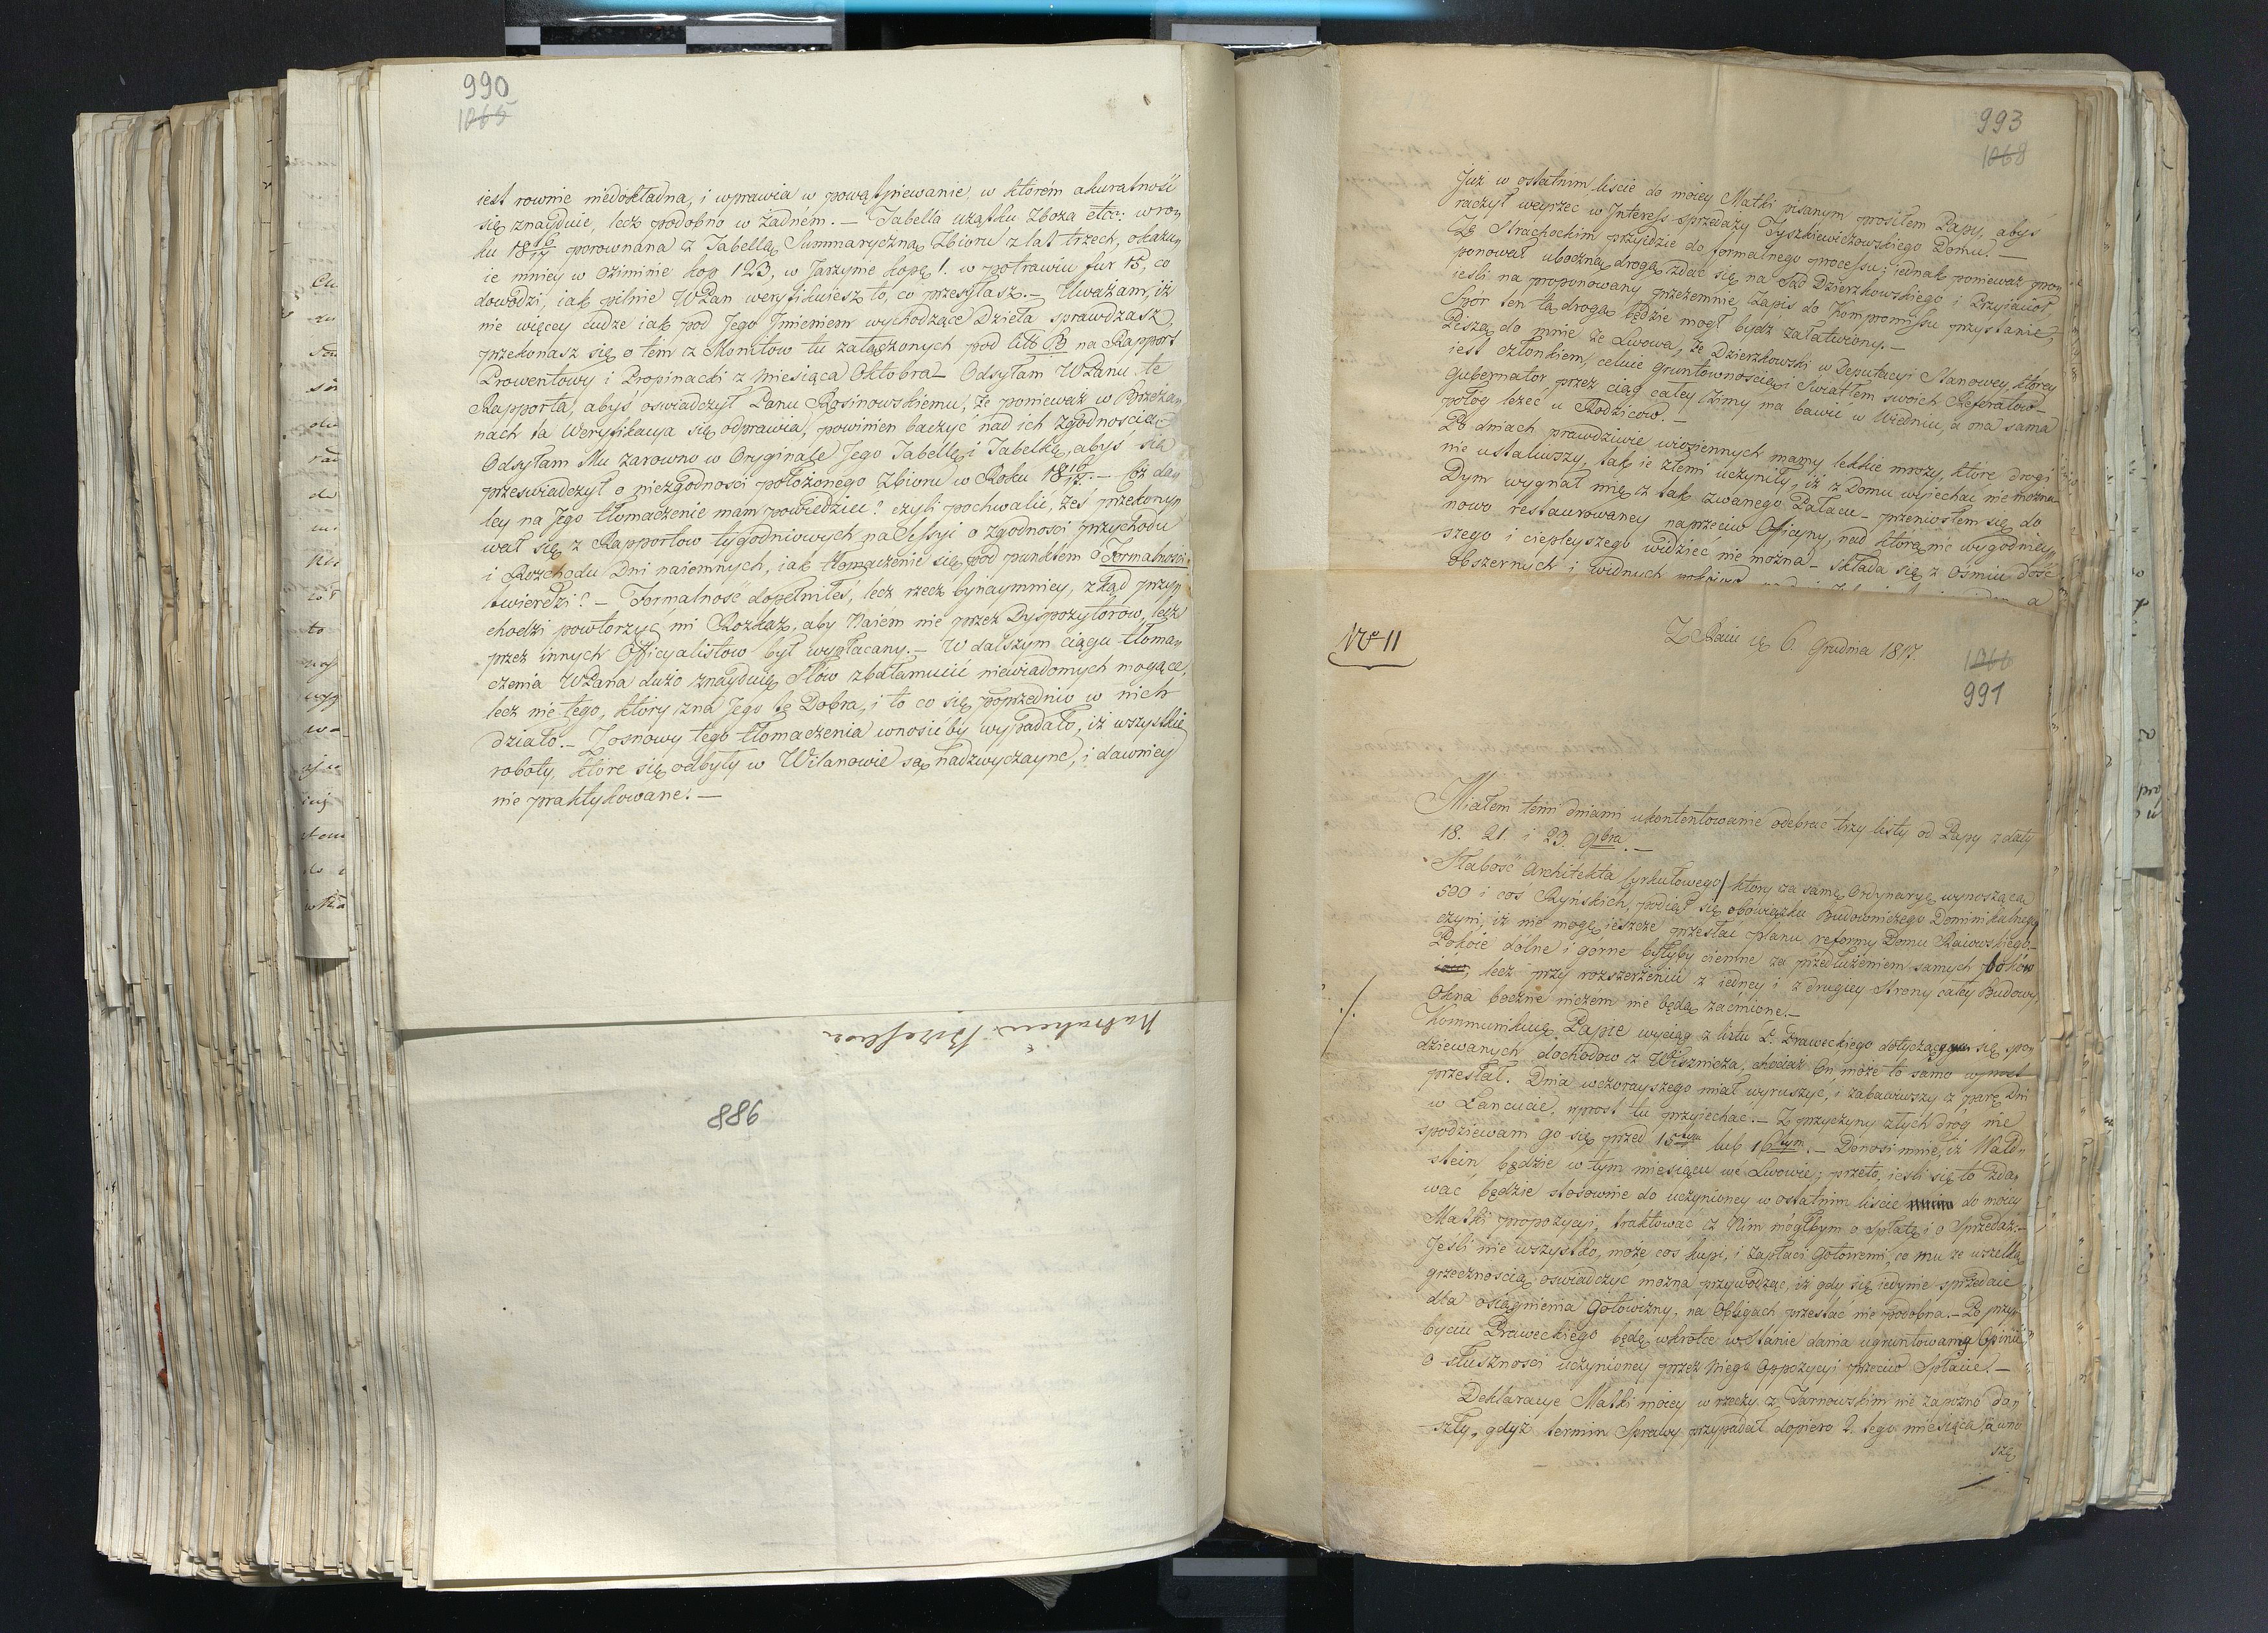 990
1065
iest rownie niedokładna, i wprawia w powątpiewanie, w którém akuratność
się znayduie, lecz podobno w żadném. — Tabella uziątku zboża etc: w ro„
ku 18 16/17 porownana z Tabellą Summaryczną Zbioru z lat trzech, okazu„
ie mniey w oziminie kop 123, w Jarzynie kopę 1. w potrawiu fur 15, co
dowodzi, iak pilnie WPan weryfikuiesz to, co przesyłasz. — Uważam, iż
nie więcey cudze iak pod Jego Jmieniem wychodzące Dzieła sprawdzasz,
przekonasz się o tém z Monitow tu załączonych pod Litt B na Rapport
Prowentowy i Propinacki z Miesiąca Oktobra — Odsyłam WPanu te
Rapporta, abyś oswiadczył Panu Rosinowskiemu, że ponieważ w Brzeża„
nach ta Weryfikacya się odprawia, powinien baczyć nad ich zgodnością
Odsyłam Mu zarowno w Oryginale Jego Tabellę i Tabelkę, abyś się
przeswiadczył o niezgodnosci położonego Zbioru w Roku 18 16/17. — Coż da„
ley na Jego tłomaczenie mam powiedzieć? czyli pochwalić, żeś przekony„
wał się z Rapportow tygodniowych na Sessyi o zgodnosci przychodu
i Rozchodu Dni naiemnych, iak tłomaczenie się pod punktem o Formalnosci
twierdzi? — Formalność dopełniłeś, lecz rzecz bynaymniey, zkąd przy„
chodzi powtorzyć mi Rozkaz, aby Naiém nie przez Dyspozytorów, lecz
przez innych Officyalistow był wypłacany. — W dalszym ciągu tłoma„
czenia WPana dużo znayduię Słów zbałamucić niewiadomych mogące,
lecz nie tego, który zna Jego te Dobra, i to co się poprzednio w nich
działo. — Z osnowy tego tłomaczenia wnosić by wypadało, iż wszystkie
roboty, które się odbyły w Wilanowie są nadzwyczayne, i dawniey
nie praktykowane! —
988
993
1068
Już w ostatnim liscie do moiey Matki pisanym prosiłem Papy, abyś
raczył weyrzec w Interess sprzedaży Tyszkiewiczowskiego Domu. —
Ze Strachockim przyidzie do formalnego processu; iednak ponieważ pro„
ponował uboczną drogą zdać się na Sąd Dzierzkowskiego i Przyiaciół,
iesli na proponowany przezemnie Zapis do Kompromissu przystanie,
Spór ten tą drogą będzie mogł bydz załatwiony. —
Piszą do mnie ze Lwowa, że Dzierzkowski w Deputacyi Stanowey, którey
iest członkiem, celuie gruntownością i Swiatłem swoich Referatow —
Gubernator przez ciąg całey Zimy ma bawić w Wiedniu, a ona sama
połog leżeć u Rodzicow. —
Po dniach prawdziwie wiosiennych mamy lekkie mrozy, które drogi
nie ustaliwszy, tak ie złemi uczyniły, iż z Domu wyiechać nie można
Dym wygnał mię z tak zwanego Pałacu — przeniosłem się do
nowo restaurowaney naprzeciw Officyny, nad którą nic wygodniey„
szego i cieplejszego widzieć nie można — Składa się z ośmiu dość
obszernych i widnych
No 11
Z Raiu d 6. Grudnia 1817.
1066
991
Miałem temi dniami ukontentowanie odebrać trzy listy od Papy z daty
18. 21. i 23. 9bra. —
Słabość Architekta Cyrkułowego/ który za samą Ordynaryą wynoszącą
500 i coś Ryńskich, podiął się obowiązku Budowniczego Dominikalnego
czyni, iż nie mogę ieszcze przesłać planu reformy Domu Raiowskiego. —
Pokoie dólne i gorne byłyby ciemne za przedłużeniem samych boków
, lecz przy rozszerzeniu z iedney i z drugiey Strony całey Budowy,
Okna boczne niczém nie będą zaćmione. —
Kommunikuię Papie wyciąg z listu P. Praweckiego dotyczący się spo„
dziewanych dochodow z Wisznicza, chociaż On może to samo wprost
przesłał. Dnia wczorayszego miał wyruszyć, i zabawiwszy z parę Dni
w Łancucie, wprost tu przyiechać. — Z przyczyny złych dróg nie
spodziewam go się przed 15tym lub 16tym. — Donosi mnie, iż Wald„
stein będzie w tym miesiącu we Lwowie; przeto, iesli się to zda„
wać będzie stosownie do uczynioney w ostatnim liscie do moiey
Matki propozycyi, traktować z Nim mógłbym o Spłatę i o Sprzedaż. —
Jeśli nie wszystko, może cos kupi, i zapłaci Gotowemi, co mu ze wszelką
grzecznością oswiadczyć można przywodząc, iż gdy się iedynie sprzedaie
dla osiągnienia Gotowizny, na Obligach przestać nie podobna. — Po przy„
byciu Praweckiego będę wkrótce w Stanie dania ugruntowaney Opinii
o słuszności uczynioney przez Niego Oppozycyi przeciw Spłacie. —
Deklaracye Matki moiey w rzeczy z Tarnowskim nie zapozno do„
szły, gdyż termin Sprawy przypadał dopiero 2. tego miesiąca, a wno
szę